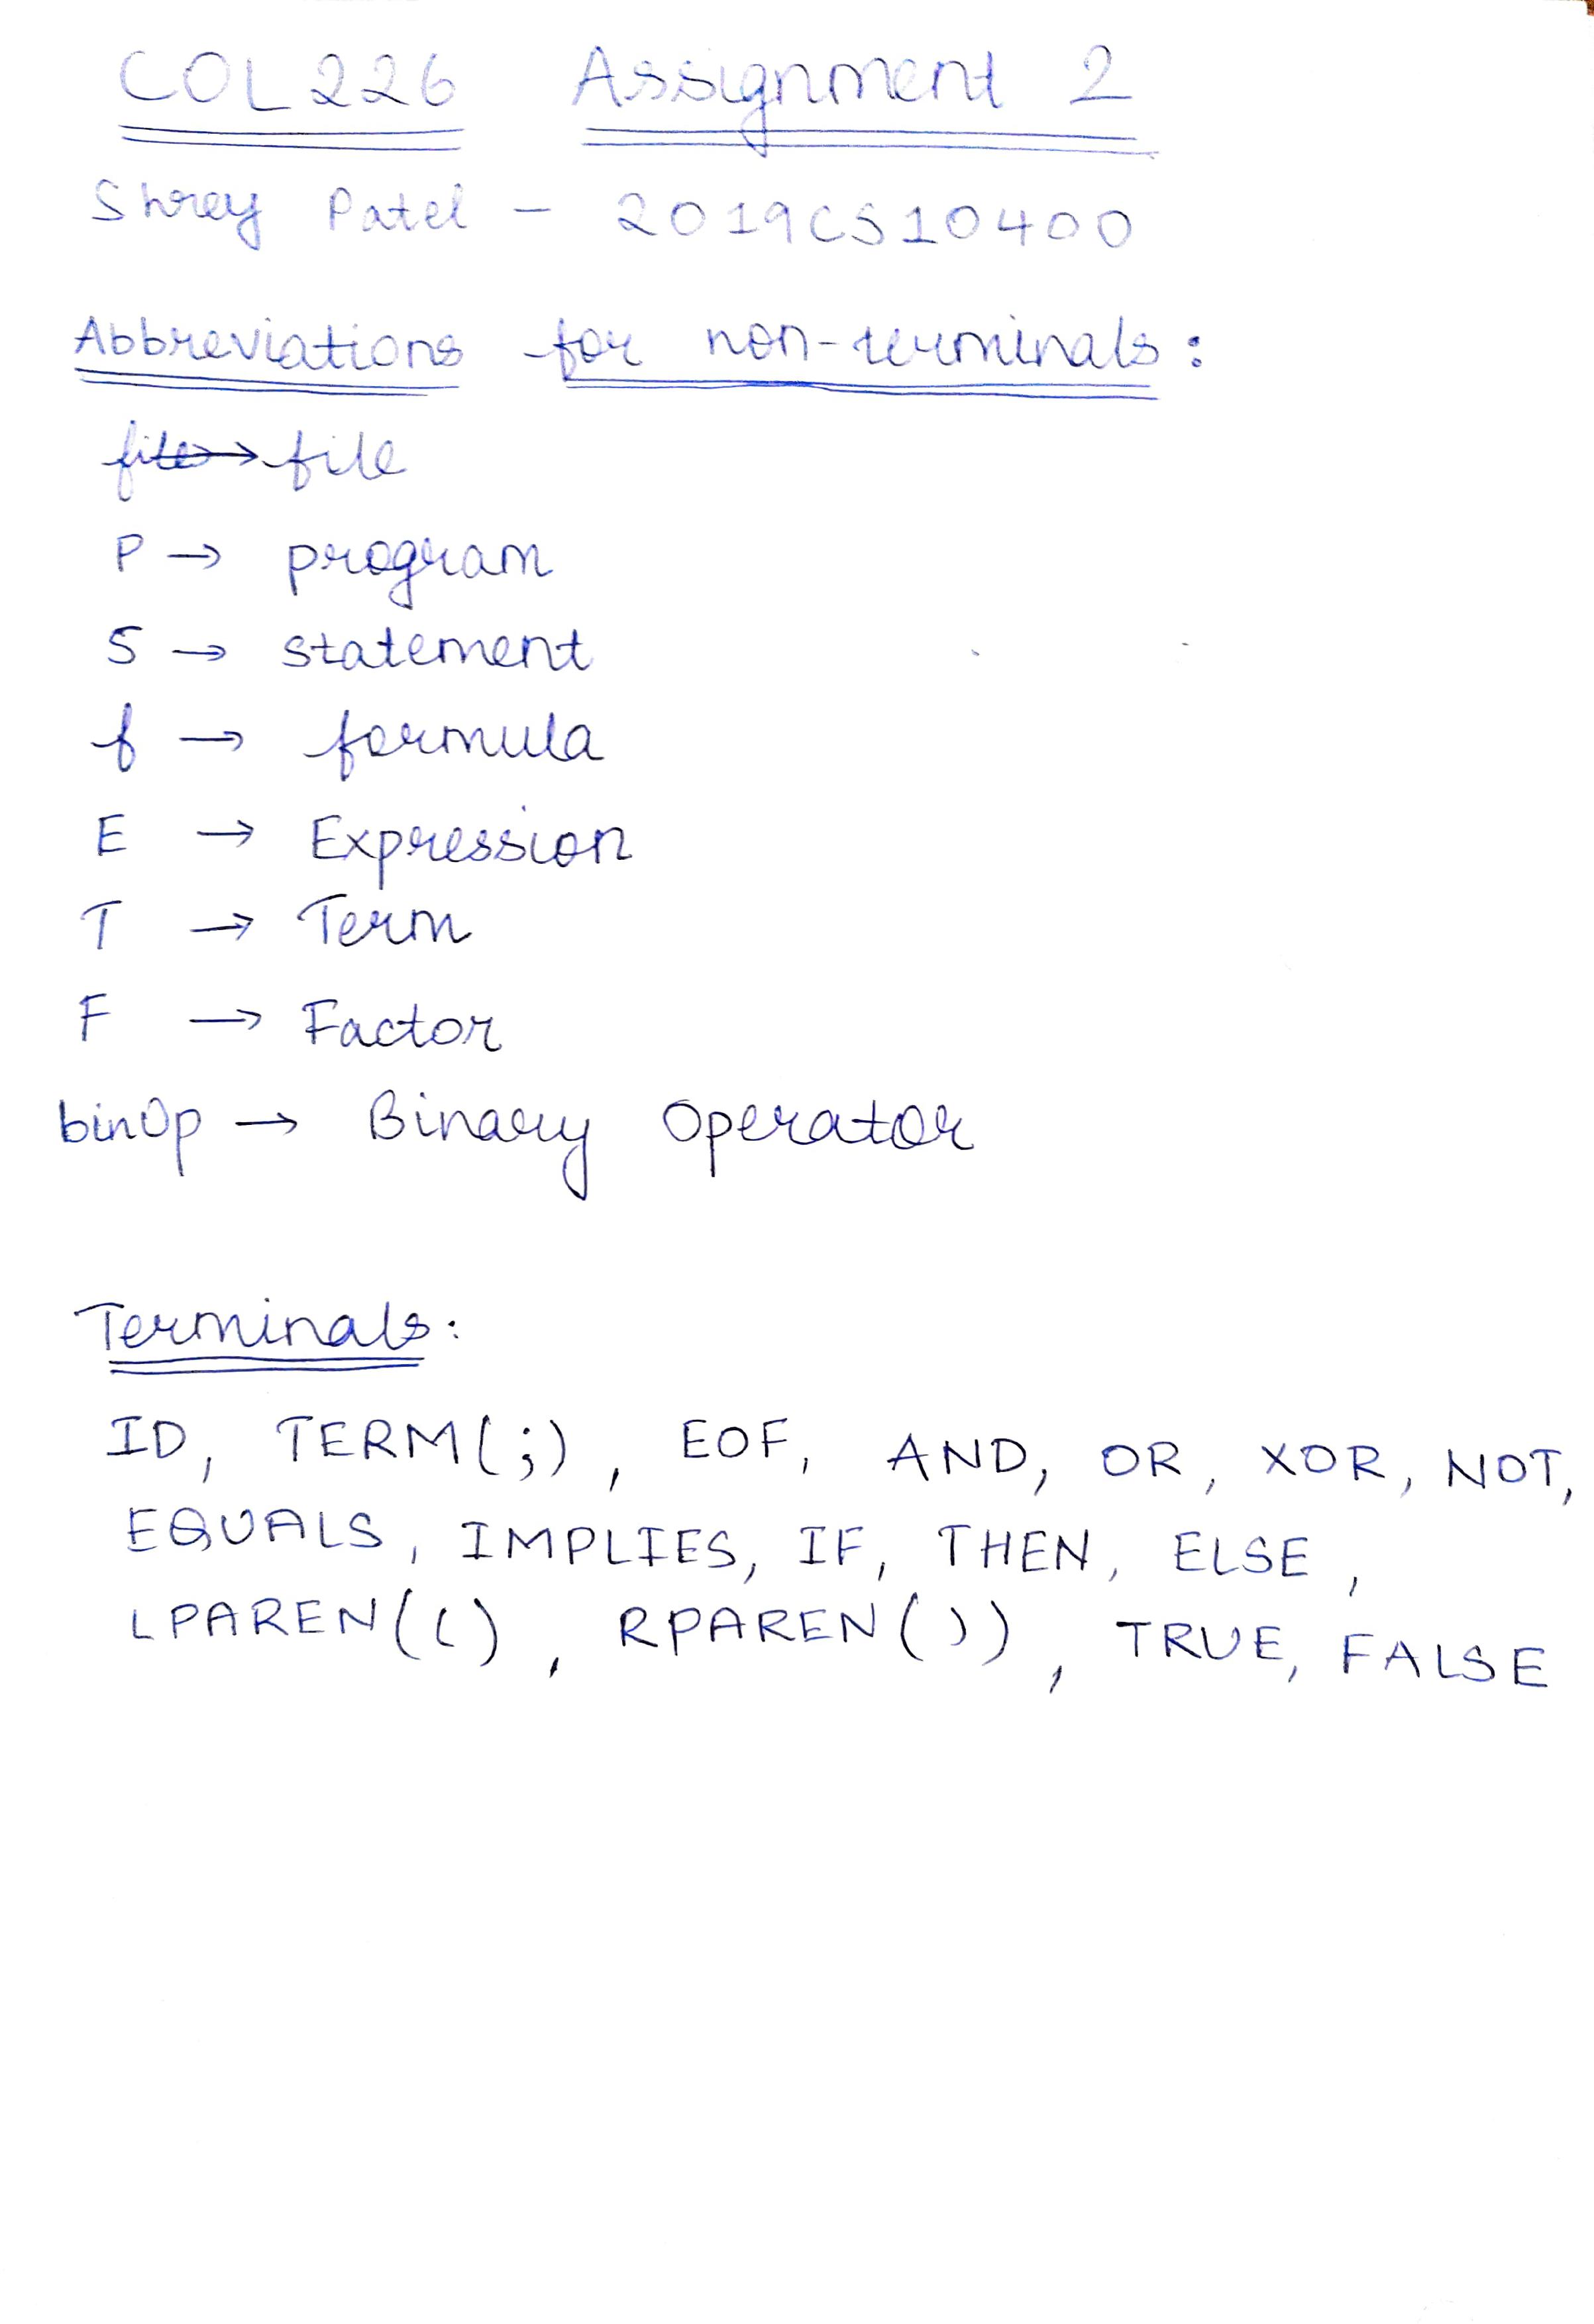 COL226 Assignment 2
Shrey Patel - 2019CS10400
Abbreviations for non-terminals:
file → file
P → program
S → statement
f → formula
E → Expression
T → Term
F → Factor
binOp → Binary Operator
Terminals:
ID, TERM(;), EOF, AND, OR, XOR, NOT,
EQUALS, IMPLIES, IF, THEN, ELSE,
LPAREN((), RPAREN()), TRUE, FALSE